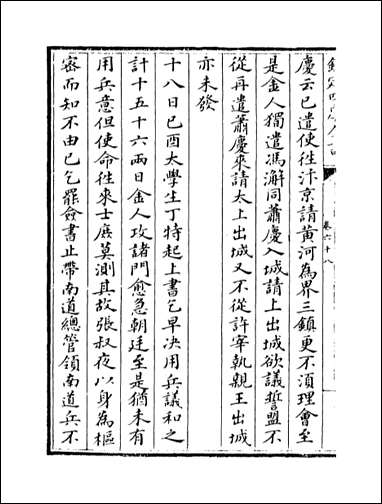 慶云已遣使徃汴京請黄河為界三鎮更不須理會至
是金人獨遣馮澥同蕭慶入城請上出城欲議誓盟不
從再遣蕭慶來請太上出城又不從許宰執親王出城
亦未發
十八日己酉太學生丁特起上書乞早決用兵議和之
計十五十六兩日金人攻諸門愈急朝廷至是猶未有
用兵意但使命徃來士庶莫測其故張叔夜以身為樞
宻而知不由已乞罷僉書止帶南道總管領南道兵不
卷六十八